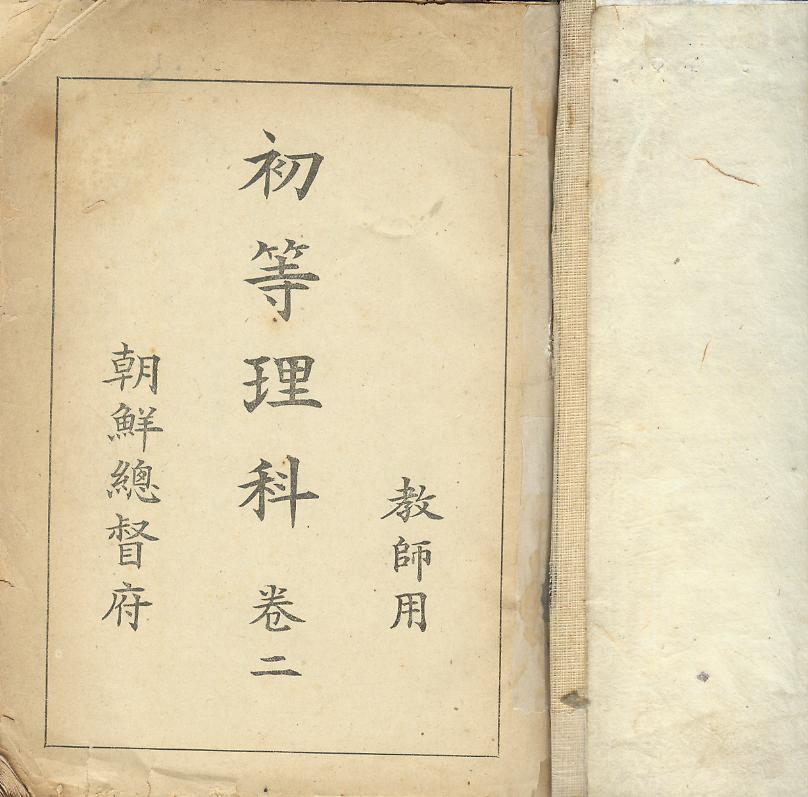 教師用
初等理科 卷二
朝鮮總督府